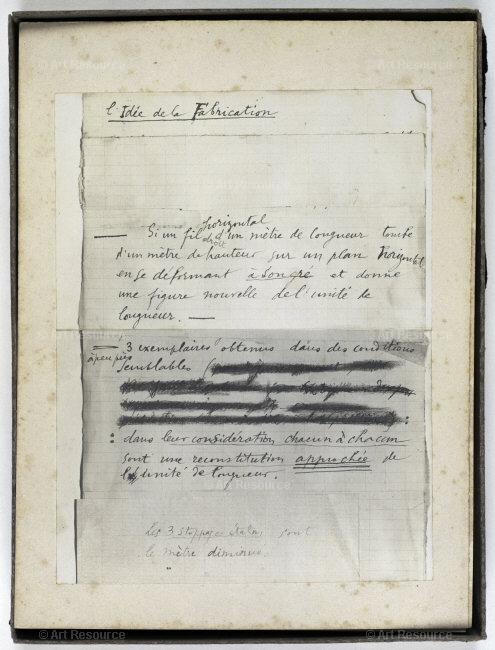 © Art Resource
© Art Resource
l'Idée de la Fabrication
horizontal
— Si un fil droit d'un mètre de longueur tombe
d'un mètre de hauteur sur un plan horizontal
en se déformant à son gré et donne
une figure nouvelle de l'unité de
longueur. —
= 3 exemplaires obtenus dans des conditions
à peu près
semblables (
:
: dans leur considération chacun à chacun
sont une reconstitution approchée de
l'unité de longueur.
Les 3 stoppages étalon sont
le mètre diminué.
© Art Resource
© Art Resource